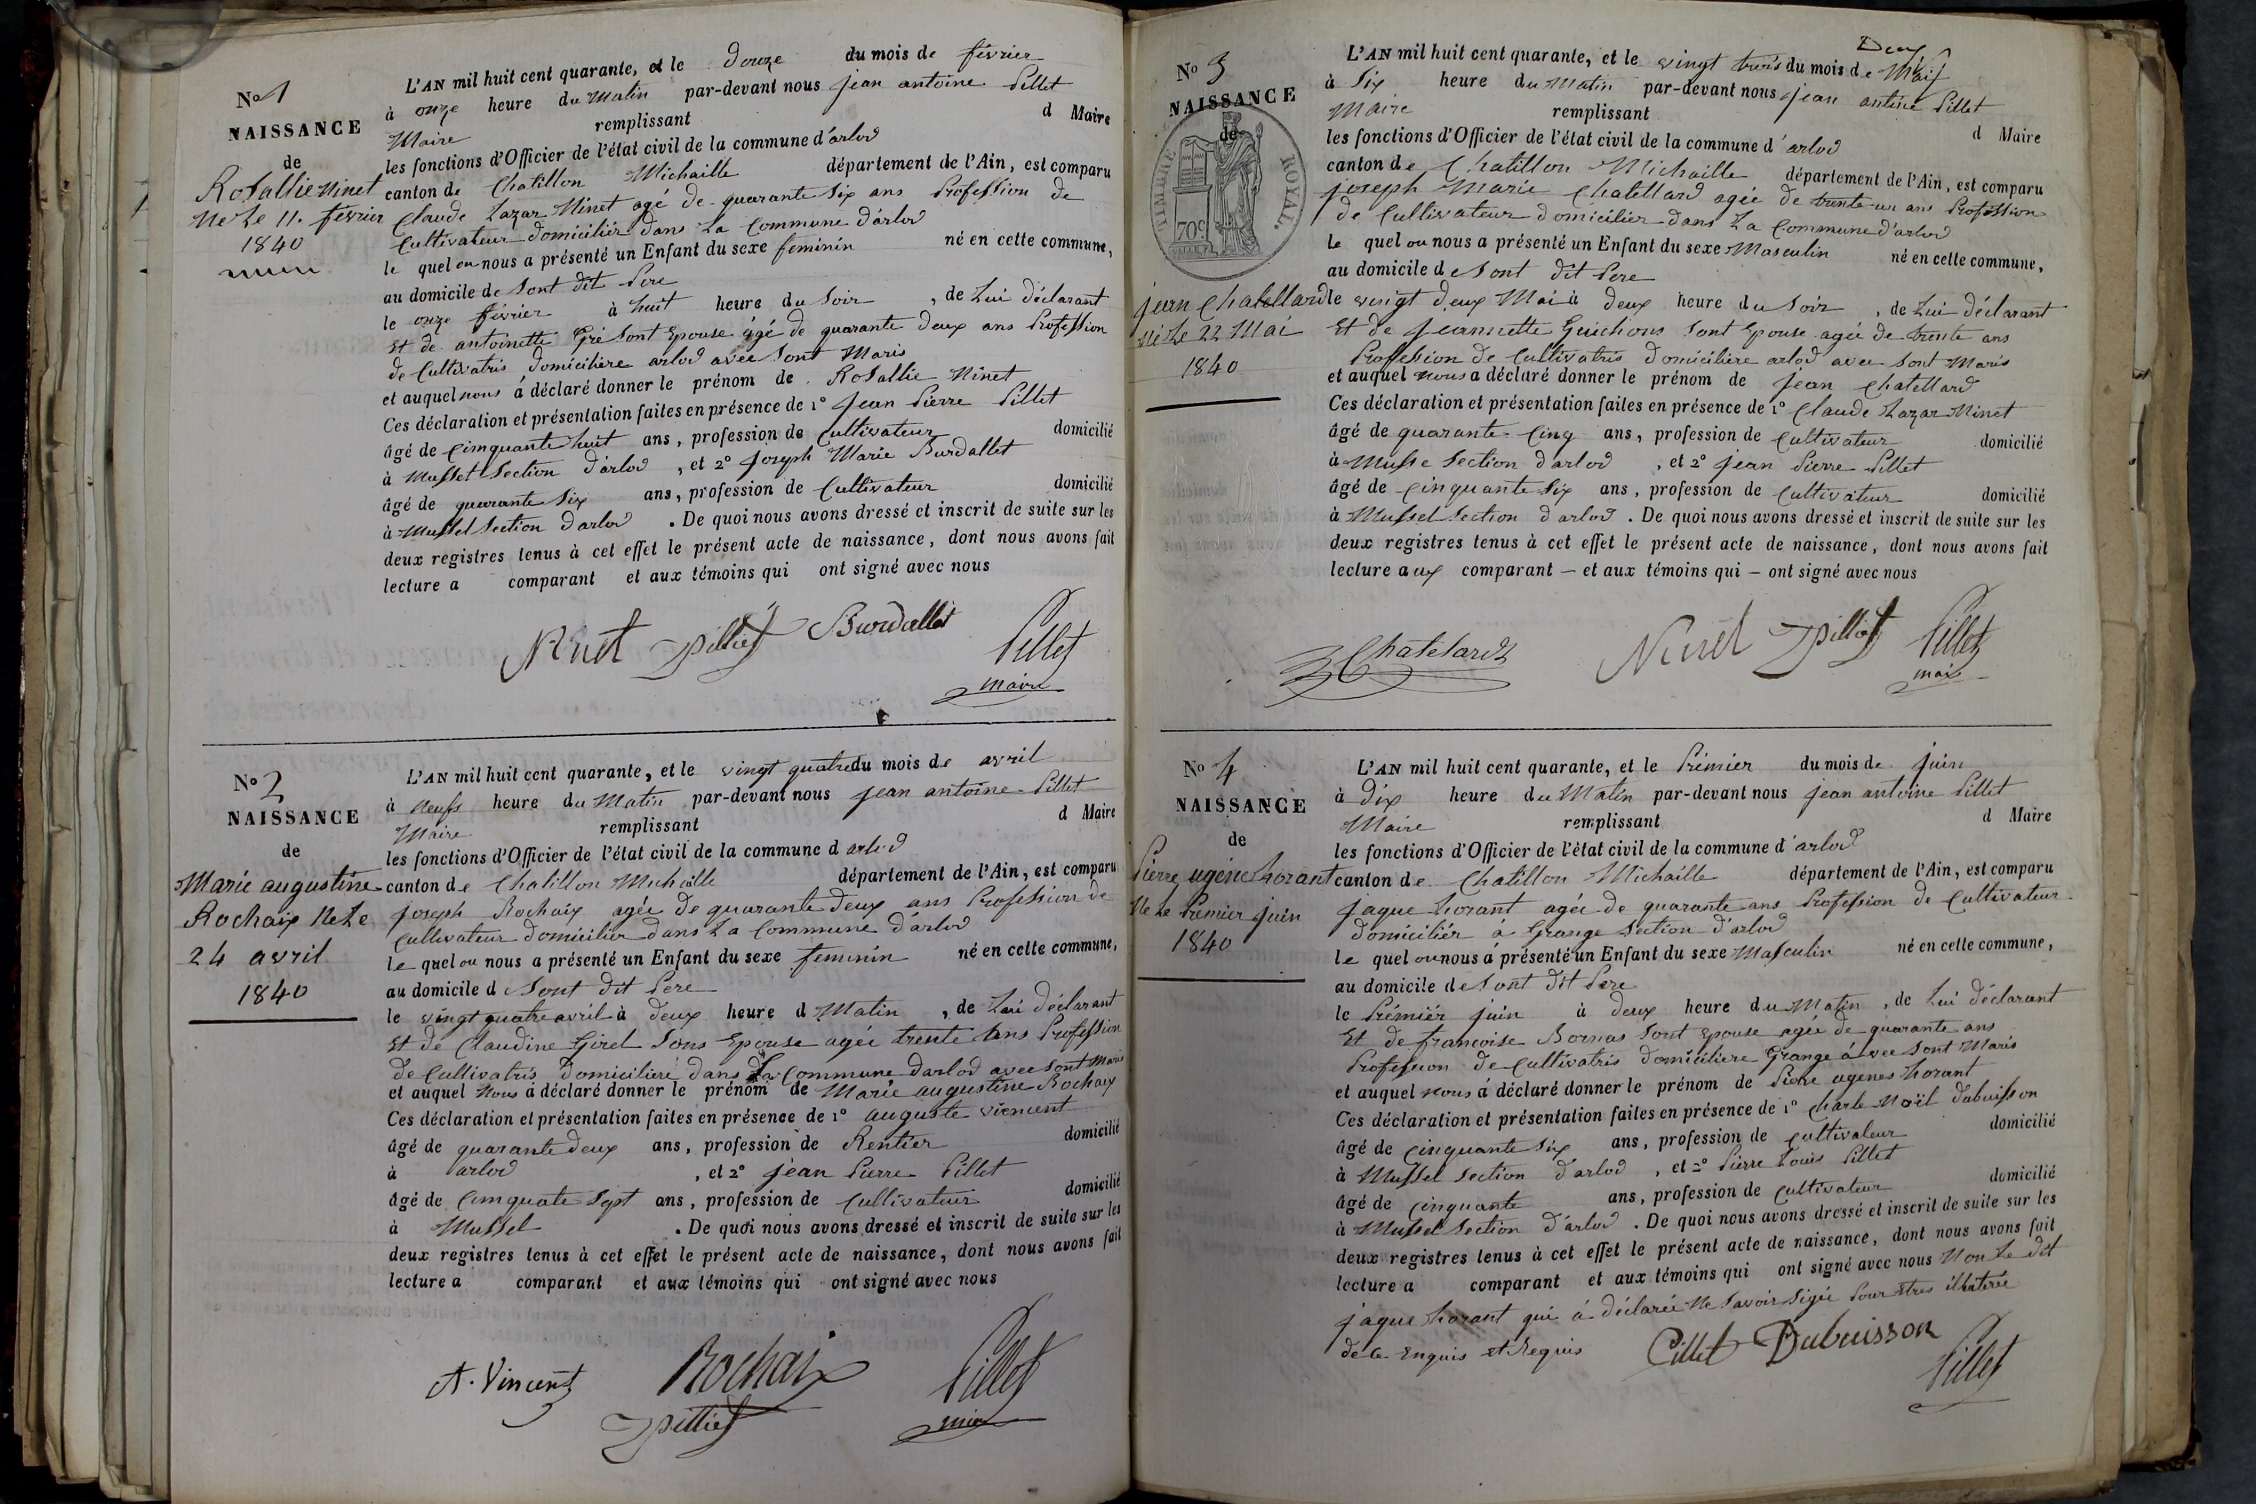 No 1
NAISSANCE
de
Rosallie Ninet
Ne Le 11. février
1840
L'AN mil huit cent quarante, et le douze du mois de février
à onze heure du Matin par-devant nous jean antoine Pillet
Maire remplissant d Maire
les fonctions d'Officier de l'état civil de la commune d'arlod
canton de Chatillon Michaille département de l'Ain, est comparu
Claude Lazar Ninet agé de quarante Six ans Profession de
Cultivateur domicilier dans La Commune d'arlod
le quel en nous a présenté un Enfant du sexe feminin né en cette commune,
au domicile de Sont dit Pere
le onze février à huit heure du Soir, de Lui déclarant
Et de antoinette Gré Sont Epouse agé de quarante deux ans Profession
de Cultivatris domiciliere arlod avec Sont Maris
et auquel nous á déclaré donner le prénom de Rosallie Ninet
Ces déclaration et présentation faites en présence de 1º Jean Pierre Pillet
âgé de Cimquante huit ans, profession de Cultivateur domicilié
à Mussel Section d'arlod, et 2º Joseph Marie Burdallet
âgé de quarante Six ans, profession de Cultivateur domicilié
à Mussel Section d'arlod. De quoi nous avons dressé et inscrit de suite sur les
deux registres tenus à cet effet le présent acte de naissance, dont nous avons fait
lecture a comparant et aux témoins qui ont signé avec nous
Ninet Pillet Burdallet Pillet
maire
No 2
NAISSANCE
de
Marie augustine
Rochaix Ne Le
24 avril
1840
L'AN mil huit cent quarante, et le vingt quatre du mois de avril
à neufs heure du Matin par-devant nous jean antoine Pillet
Maire remplissant d Maire
les fonctions d'Officier de l'état civil de la commune d arlod
canton de Chatillon Michaille département de l'Ain, est comparu
joseph Rochaix agée de quarante deux ans Profession de
Cultivateur domicilier dans La Commune d'arlod
le quel ou nous a présenté un Enfant du sexe feminin né en cette commune,
au domicile de Sont dit Pere
le vingt quatre avril à deux heure d Matin, de Lui déclarant
Et de Claudine Girel Sons Epouse agée trente ans Profession
de Cultivatris Domiciliere dans La Commune Darlod avec Sont Maris
et auquel Nous á déclaré donner le prénom de Marie augustine Rochaix
Ces déclaration et présentation faites en présence de 1º auguste viencent
âgé de quarante deux ans, profession de Rentier domicilié
à arlod, et 2º jean Pierre Pillet
âgé de Cimquate Sept ans, profession de Cultivateur domicilié
à Mussel. De quoi nous avons dressé et inscrit de suite sur les
deux registres tenus à cet effet le présent acte de naissance, dont nous avons fait
lecture a comparant et aux témoins qui ont signé avec nous
A. Vincent Rochaix Pillet
Pillet
No 3
NAISSANCE
de
TIMBRE ROYAL.
70c
jean Chatellard
né Le 22 Mai
1840
L'AN mil huit cent quarante, et le vingt trois du mois de Mai
à Six heure du Matin par-devant nous jean antoine Pillet
Maire remplissant d Maire
les fonctions d'Officier de l'état civil de la commune d'arlod
canton de Chatillon Michaille département de l'Ain, est comparu
joseph Marie Chatellard agée de trente-un ans Profession
de Cultivateur domicilier dans La Commune d'arlod
le quel ou nous a présenté un Enfant du sexe Masculin né en cette commune,
au domicile de Sont dit Pere
le vingt deux Mai à deux heure du Soir, de Lui Déclarant
Et de Jeannette Guichons Sont Epouse agée de trente ans
Profession de Cultivatris domiciliere arlod avec Sont Maris
et auquel nous a déclaré donner le prénom de jean Chatellard
Ces déclaration et présentation faites en présence de 1º Claude Lazar Ninet
âgé de quarante Cinq ans, profession de Cultivateur domicilié
à Musse Section d'arlod, et 2º jean Pierre Pillet
âgé de Cinquante Six ans, profession de Cultivateur domicilié
à Mussel Section d'arlod. De quoi nous avons dressé et inscrit de suite sur les
deux registres tenus à cet effet le présent acte de naissance, dont nous avons fait
lecture aux comparant – et aux témoins qui – ont signé avec nous
Chatelard Ninet Pillet Pillet
No 4
NAISSANCE
de
Pierre ugéne horant
Ne Le Premier juin
1840
L'AN mil huit cent quarante, et le Prémier du mois de juin
à Dix heure du Matin par-devant nous jean antoine Pillet
Maire remplissant d Maire
les fonctions d'Officier de l'état civil de la commune d'arlod
canton de Chatillon Michaille département de l'Ain, est comparu
jaque horant agée de quarante ans Profession de Cultivateur
domiciliér á Grange Section d'arlod
le quel ou nous á présenté un Enfant du sexe Masculin né en cette commune,
au domicile de Sont dit Pere
le Prémiér juin à deux heure du Matin, de Lui déclarant
Et de francoise Bornas Sont Epouse agée de quarante ans
Profession de Cultivatris domiciliere Grange ávec Sont Maris
et auquel nous á déclaré donner le prénom de Pierre ugenes horant
Ces déclaration et présentation faites en présence de 1º Charle Noël Dubuisson
âgé de Cinquante Six ans, profession de Cultivateur domicilié
à Mussel Section d'arlod, et 2º Pierre Louis Pillet
âgé de Cinquante ans, profession de Cultivateur domicilié
à Mussel Section d'arlod. De quoi nous avons dressé et inscrit de suite sur les
deux registres tenus à cet effet le présent acte de naissance, dont nous avons fait
lecture a comparant et aux témoins qui ont signé avec nous Non Le dit
jaque horant qui á déclarée Ne Savoir Sigée Pour Etres illatérée
de ce Enquis et Requis
Pillet Dubuisson Pillet